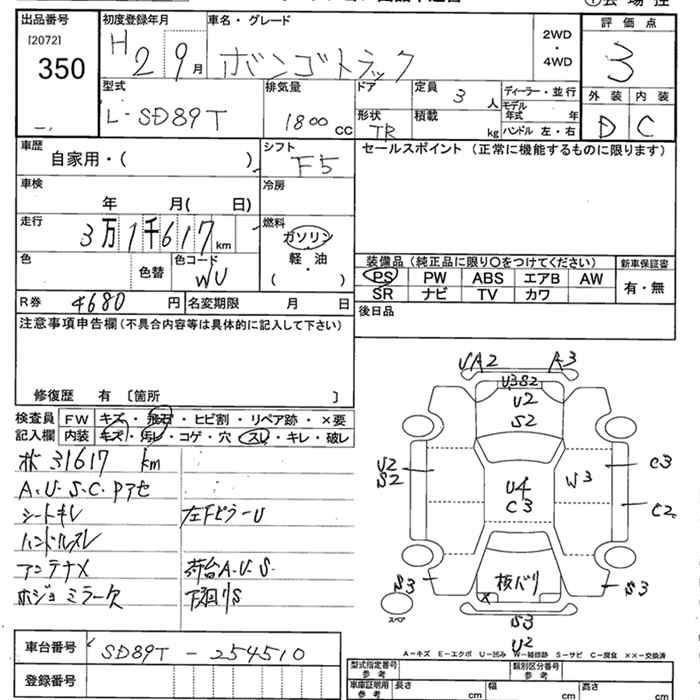 出品番号
[2072]
350
初度登録年月
H 2 9 月
車名・グレード
ボンゴトラック
2WD
・
4WD
評価点
3
外装 内装
D C
型式
L-SD89T
排気量
1800 cc
ドア
形状
TR
定員
3 人
積載
kg
ディーラー・並行
モデル
年式 年
ハンドル 左・右
車歴
自家用・( )
シフト
F5
セールスポイント (正常に機能するものに限ります)
車検
年 月( 日)
冷房
走行
3万1千617 km
燃料
ガソリン
・
軽・油
( )
色
色替
色コード
WU
装備品 (純正品に限り〇をつけてください)
新車保証書
PS PW ABS エアB AW
SR ナビ TV カワ
有・無
R券 4680 円
名変期限 月 日
後日品
注意事項申告欄 (不具合内容等は具体的に記入して下さい)
修復歴 有 〔箇所 〕
検査員 FW キズ・飛石・ヒビ割・リペア跡・×要
記入欄 内装 キズ・汚レ・コゲ・穴・スレ・キレ・破レ
31617 km
A.U.S.C.Pアセ
シートキレ
左Fピラー U
ハンドルスレ
アンテナX
荷台A.U.S.
ホジョミラー欠
下廻りS
UA2 A3
U3S2
U2
S2
U2
S2
U4
C3
W3
C3
C2
S3
核バリ
S3
スペア
S3
U2
A-キズ E-エクボ U-凹み W-補修跡 S-サビ C-腐食 ××-交換済
車台番号
SD89T-254510
登録番号
型式指定番号
参考
類別区分番号
参考
車庫証明用
参考
長さ cm
幅 cm
高さ cm